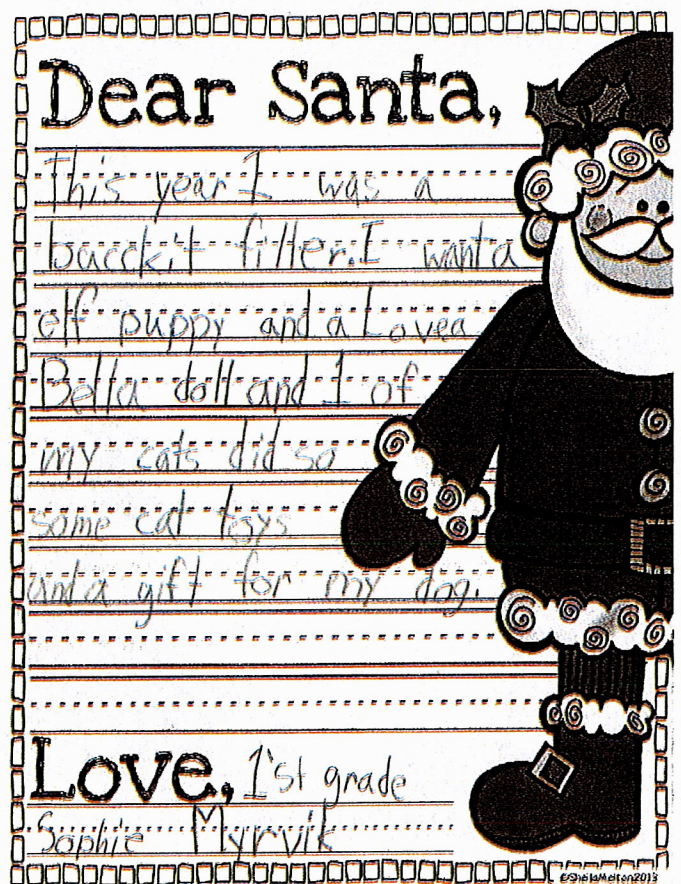 Dear Santa,
This year I was a
bacckit filler. I want a
elf puppy and a Lovea
Bella doll and 1 of
my cats did so
some cat toys
and a gift for my dog.
Love, 1'st grade
Sophie Myrvik
©SheilaMelton2013